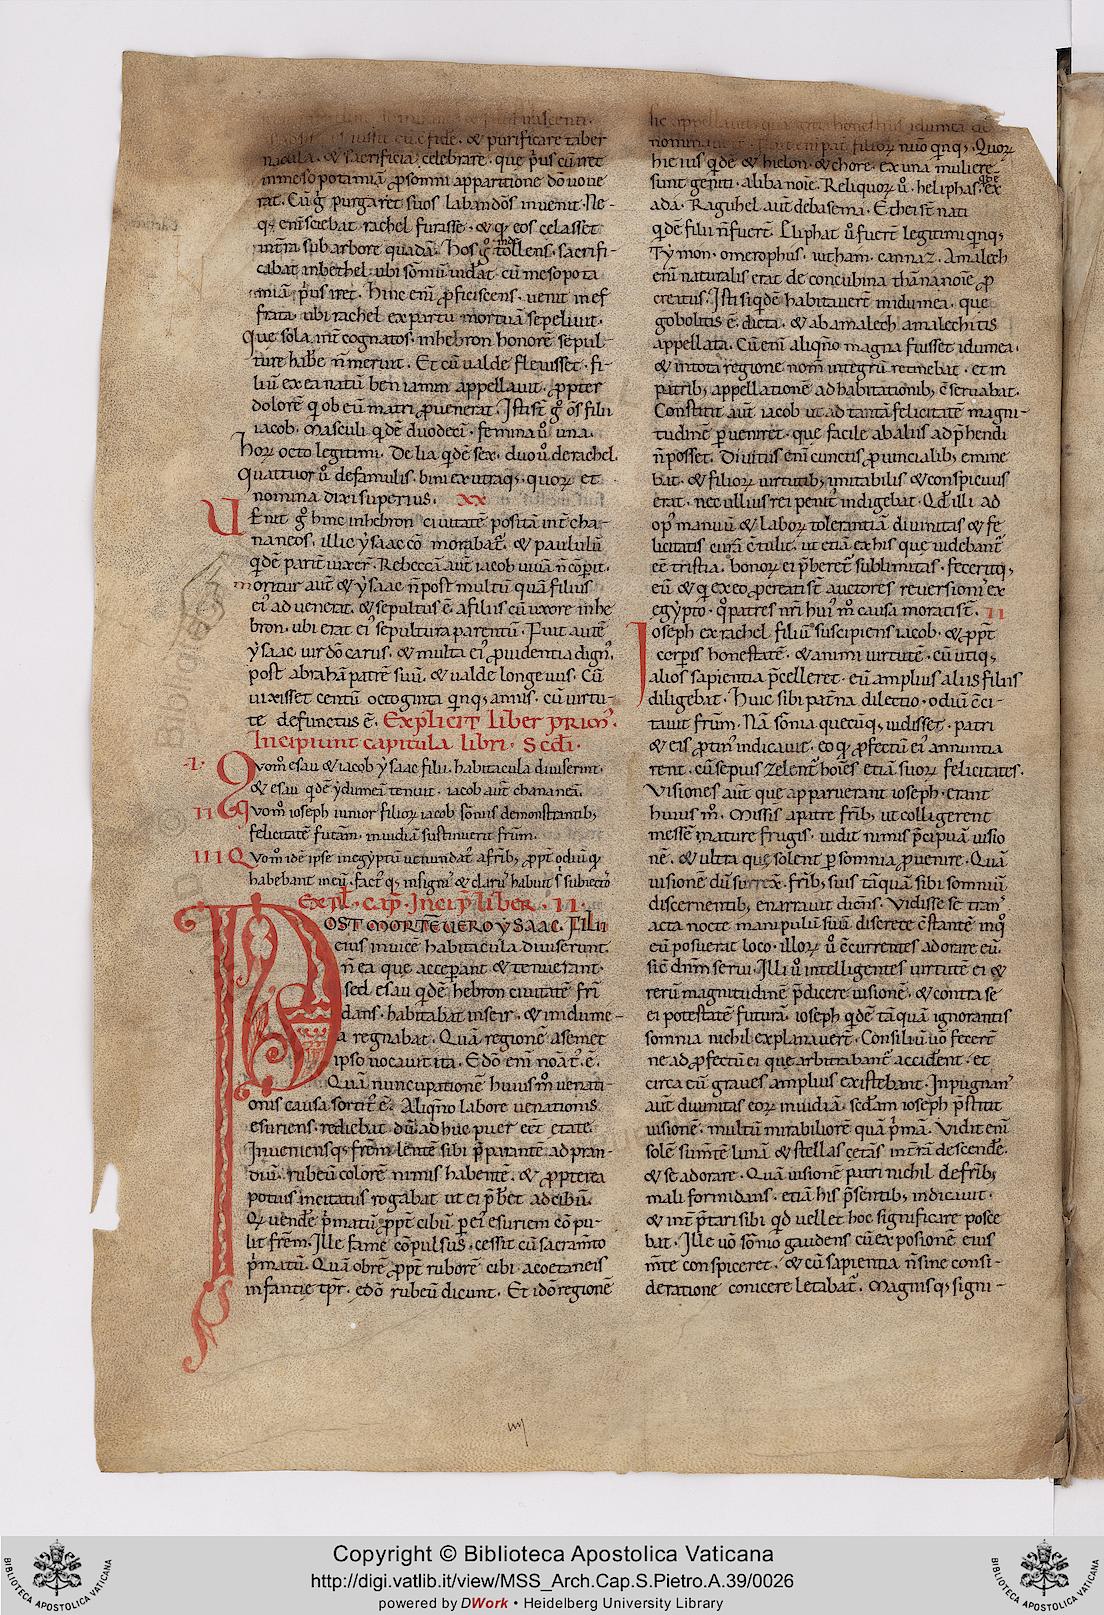 nasciscenti.
iussit cu᷒ e᷒ fide · & purificare taber
nacula · & sacrificia celebrare · que p̄us cū iret
in mesopotamiā ꝓ somni apparitione dō uoue
rat. Cū g̊ purgaret suos labandōs inuenit · Ne-
q; eni᷒ sciebat rachel furasse · & qꝛ eos celasset
int̄ra sub arbore quadā. Hos g̊ tollens · sacrifi-
cabat in bethel · ubi sōniū uidat cū mesopota
miā p̄us iret. Hinc eni᷒ ꝓficiscens · uenit in ef
frata · ubi rachel ex partu mortuā sepeliuit.
Que sola int̄ cognatos · in hebron honorē sepul-
ture habe n̄ meruit. Et cū ualde fleuisset · fi-
liū ex ei natū beniamin appellauit · ꝓpter
dolorē qi ob eū matri ꝓuenerat. Isti st̄ g̊ ōs filii
iacob. Masculi qdē duodeci · femina ů una.
Horꝝ octo legitimi · De lia qdē sex · duo ů de rachel.
Quattuor ů de famulis · bini ex utraq; · quorꝝ et
nomina dixi superius. XX
Uenit g̊ hinc in hebron ciuitatē positā int̄ cha-
naneos · illic ysaac cō morabat᷒ · & paululū
qdē parit᷒ uixer̄. Rebeccā aut̄ iacob uiuā n̄ cōꝑit.
moritur aut̄ & ysaac n̄ post multū quā filius
ei᷒ aduenerat · & sepultus ē a filiis cū uxore in he
bron · ubi erat ei᷒ sepultura parentū. Fuit autē
ysaac uir dō carus · & multa ei᷒ ꝓuidentia dign᷒
post abrahā patrē suū · & ualde longeuus. Cū
uixisset centū octoginta qinq; annis · cū uirtu-
te defunctus ē. Explicit liber prim᷒.
Incipiunt capitula libri · Scdi ·
·I· Quom̊ esau & iacob ysaac filii · habitacula diuiserint ·
& esau qdē ydumeā tenuit · iacob aut̄ chananeā.
II Quom̊ ioseph iunior filiorꝝ iacob sōniis demonstrantib;
felicitatē futarā · inuidiā sustinuerit frum̄.
III Quom̊ idē ipse in egyptū uenundat᷒ a frib; ꝓpt̄ odiū qꝛ
habebant in eū · fact᷒ q; insignis & clarus habuit s̄ subiectos
Expl̄ · cap̄ · Incip̄ liber · II ·
POST MORTE UERO YSAAC. Filii
eius inuicē habitacula diuiserunt ·
n̄ ea que acceperant & tenuerant ·
sed esau qdē hebron ciuitatē fri᷒
dans · habitabat in seir · & in idume-
a regnabat. Quā regionē a semet
ipso uocauit ita. Edō eni᷒ noat᷒ ē.
Quā nuncupationē huius m̊ uenati-
onis causa sortit᷒ ē. Aliqn̄o labore uenationis
esuriens · rediebat dū adhuc puer eēt etate.
Inueniensq; frēm lentē sibi p̄parantē ad pran-
diū · rubeū colorē nimis habentē · & ꝓpterea
potius incitatus rogabat ut ei p̄bet ad cibū.
Qꝛ uende p̄matū ꝓpt̄ cibū ꝑ ei᷒ esuriem cōpu-
lit frēm. Ille famē cōpulsus · cessit cū sacram̄to
p̄matū. Quā obrē ꝓpt̄ ruborē cibi · a coetaneis
infantie tp̄r · edō rubeū dicunt. Et idō regionē
hic appellauit que greci honestius idumea de
nominauit · Fuit eni᷒ pat̄ filiorꝝ nūo qinq; · Quorꝝ
hic ius qdē & hielon · & chore · ex una muliere
sunt geniti · aliba noīe. Reliquorꝝ ů · heliphas qdē ex
ada · Raguhel aut̄ debasema. Et hei st̄ nati
qdē filii n̄ fuer̄t. Eliphat ů fuer̄t legitimi qinq;
Tymon · omerophus · iutham · cannaz · Amalech
eni᷒ naturalis erat de concubina thāna noīe ꝓ
creatus. Isti siqdē habitauer̄t in idumea · que
gobolitis ē dicta · & ab amalech amalechitis
appellata. Cū eni᷒ aliqn̄o magna fuisset idumea ·
& in tota regione nom̄ integrū retinebat · et in
patrib; appellationē ad habitationib; ē seruabat.
Constitit aut̄ iacob ut ad tantā felicitatē magni-
tudinē ꝑueniret · que facile ab aliis ad p̄hendi
n̄ posset. Diuitiis eni᷒ cunctis ꝓuincialib; emine
bat · & filiorꝝ uirtutib; imitabilis & conspicuus
erat · nec ullius rei penit᷒ indigebat · Qd̄ illi ad
op᷒ manuū & laborꝝ tolerantiā diuinitas & fe
licitatis curā c̄tulit · ut etiā ex his que uidebant᷒
eē tristia · bonorꝝ ei p̄beret᷒ sublimitas · feceritq;
eū & qi ex eo ꝓcreati st̄ auctores reuersionis ex
egypto · qd patres nr̄i hui᷒ m̊ causa morati st̄. II
Ioseph ex rachel filiū suscipiens iacob · & ꝓpt̄
corꝑis honestatē · & animi uirtutē · cū utiq;
alios sapientia p̄celleret · eū amplius aliis filiis
diligebat. Huic sibi patna dilectio · odiū ēci-
tauit frūm. Nā sōnia quecūq; uidisset · patri
& eis ꝓtin᷒ indicauit · eo qꝛ ꝓfectū ei᷒ annuntia
rent · cū sepius zelent᷒ hoīes etiā suorꝝ felicitates.
Visiones aut̄ que apparuerant ioseph · erant
huius m̊. Missis a patre frib; ut colligerent
messē mature frugis · uidit nimis p̄cipuā uisio
nē · & ultra que solent ꝑ somnia ꝓuenire. Quā
uisionē dū surrex̄ · frib; suis tā quā sibi somniū
discernentib; enarrauit dicēns. Vidisse se trans
acta nocte manipulū suū discrete c̄stantē inq
eū posuerat loco · illorꝝ ů c̄currentes adorare eū ·
sic dnm̄ serui. Illi ů intelligentes uirtutē ei & 
rerū magnitudinē p̄dicere uisionē · & contra se
ei potestatē futurā · ioseph qdē tā quā ignorantis
somnia nichil explanauer̄t. Consiliū uō fecer̄t
ne ad ꝓfectū ei᷒ que arbitrabant᷒ accident · et
circa eū graues amplius existebant. Inpugnans
aut̄ diuinitas eorꝝ inuidiā · sedam ioseph p̄stitit
uisionē · multū mirabiliorē quā p̄mā. Vidit eni᷒
solē sum̄tē lunā & stellas cetas in t̄ram descende
& se adorare. Quā uisionē patri nichil de frib;
mali formidans · etiā his p̄sentib; indicauit ·
& int̄p̄tari sibi qd uellet hoc significare posce
bat. Ille uō sōnio gaudens cū exposione eius
m̄te conspiceret · & cū sapientia n̄ sine consi-
deratione conicere letabat᷒. Magnisq; signi-
IIII
Copyright © Biblioteca Apostolica Vaticana
http://digi.vatlib.it/view/MSS_Arch.Cap.S.Pietro.A.39/0026
powered by DWork • Heidelberg University Library
BIBLIOTECA APOSTOLICA VATICANA
BIBLIOTECA APOSTOLICA VATICANA